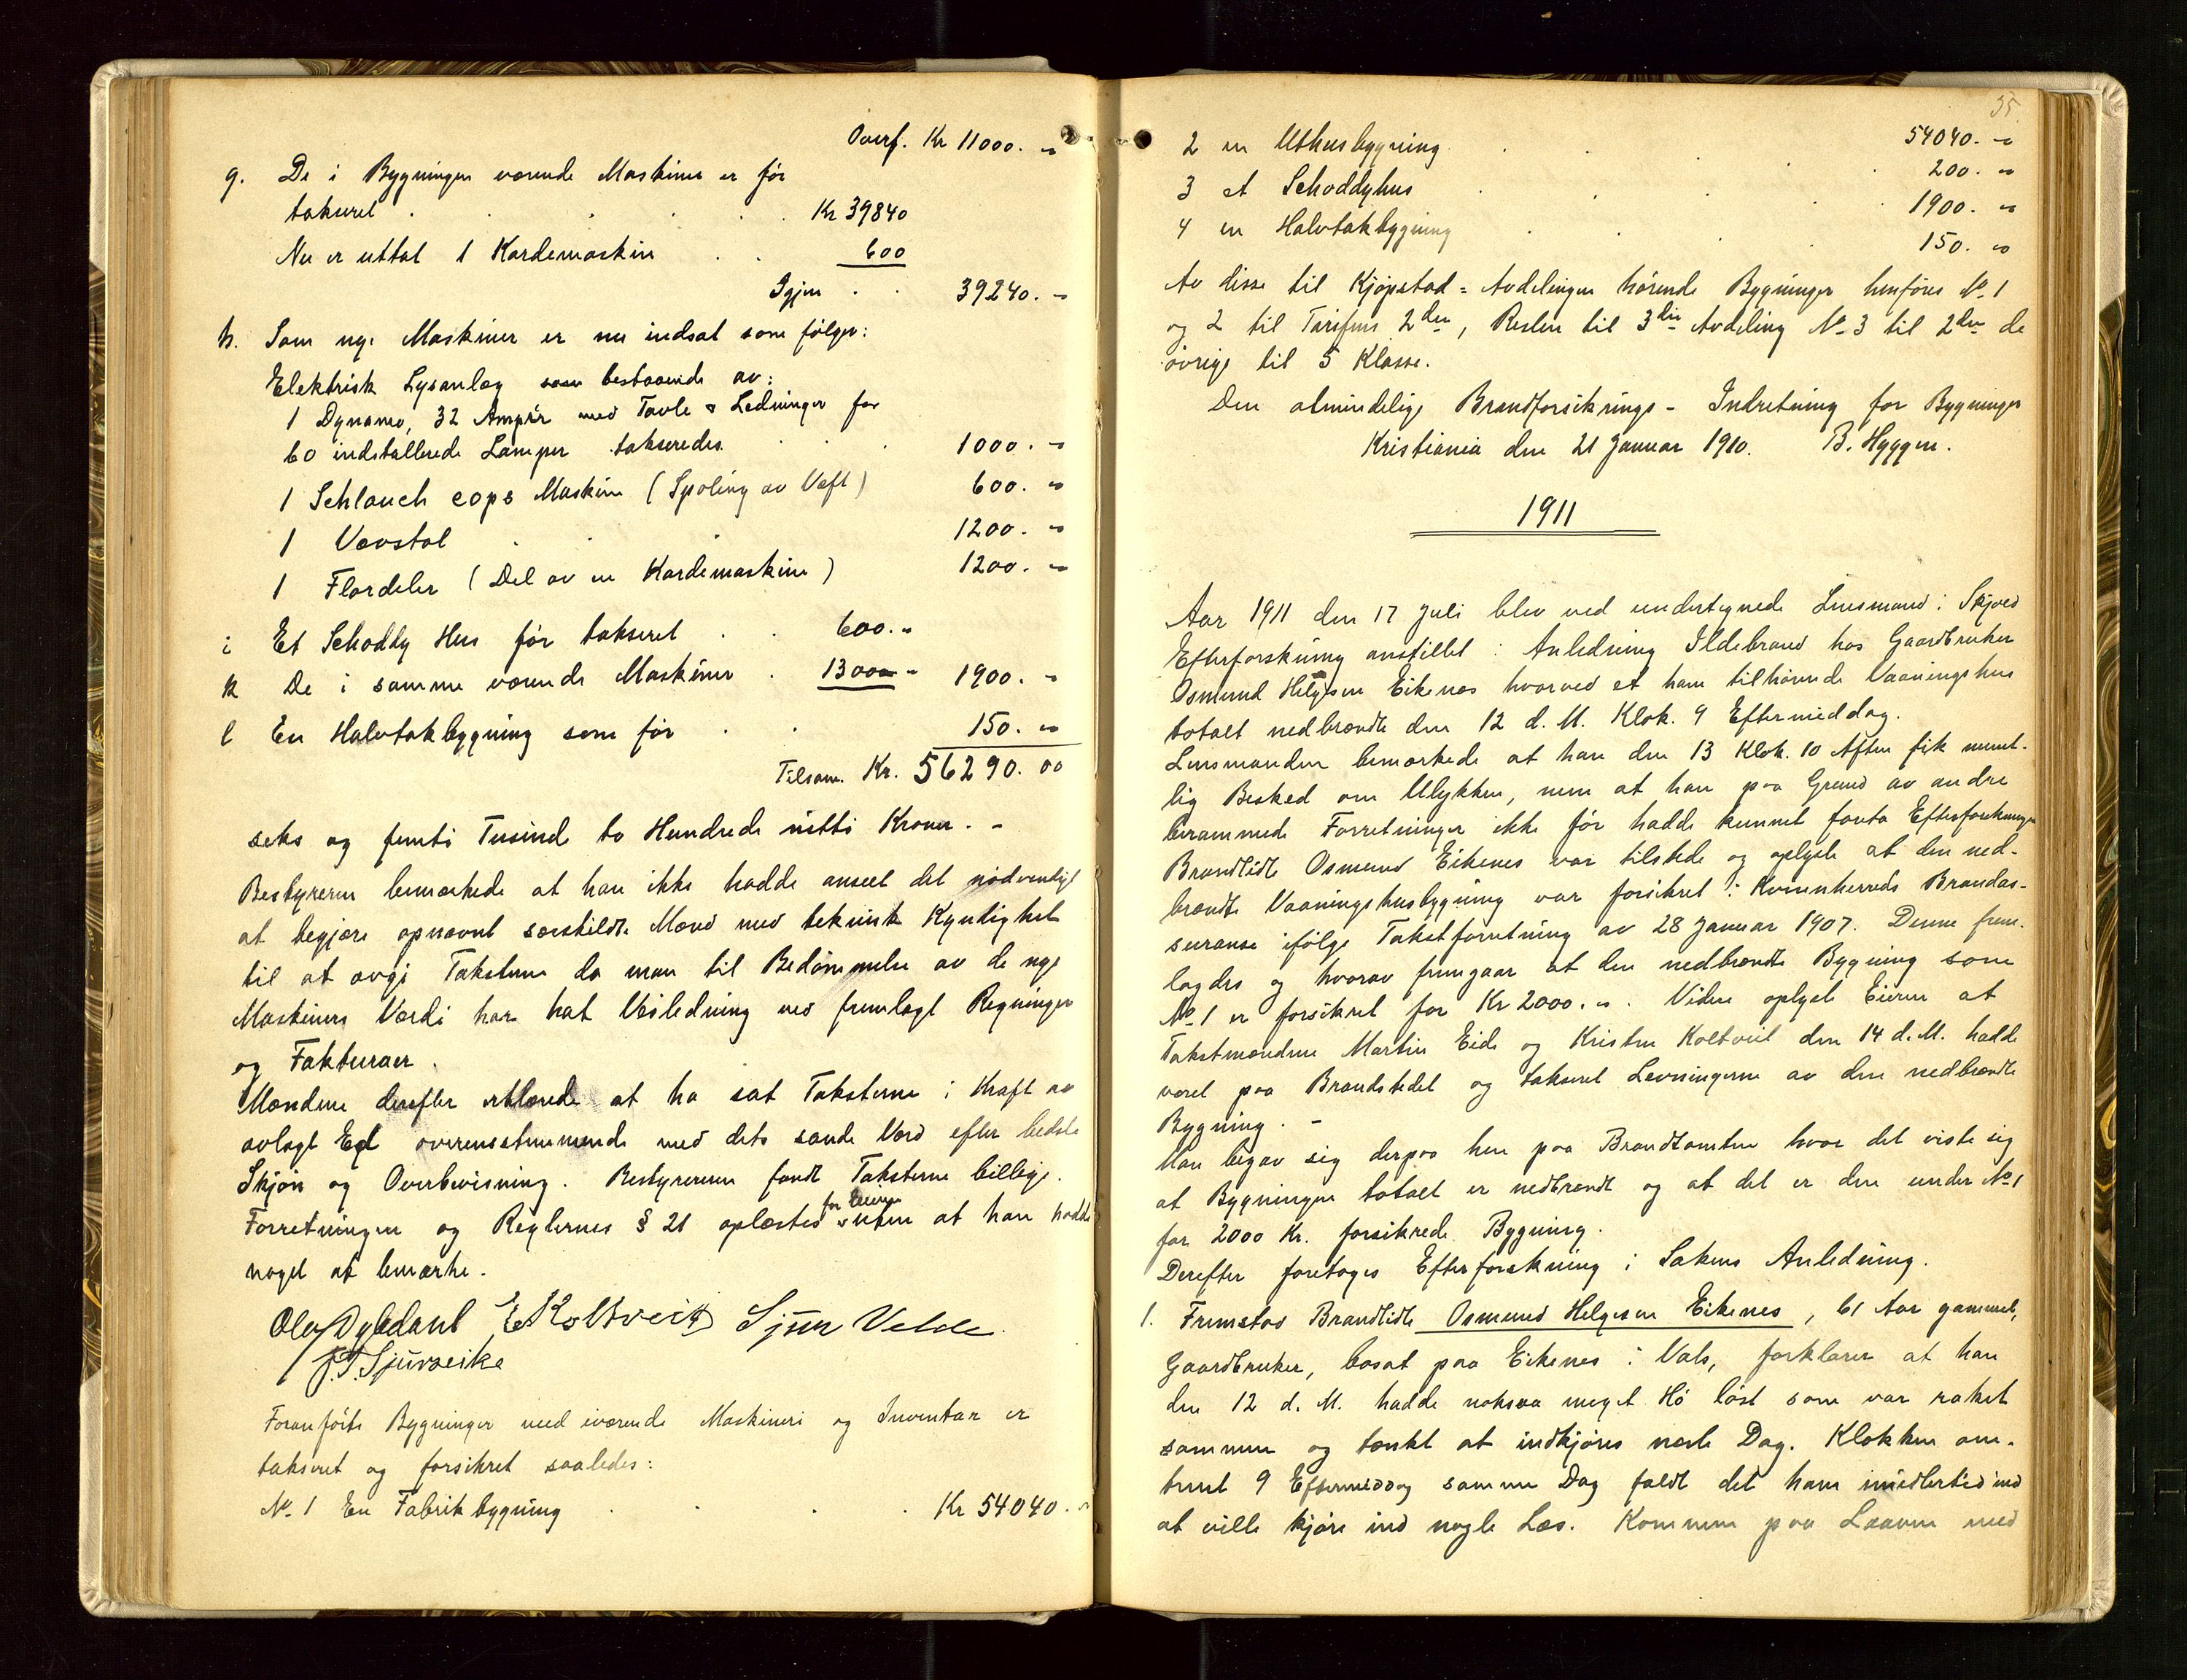 Overf. Kr 11000. "
g. De i Bygningen værende Maskiner er før
takseret . . . . Kr 39840
Nu er uttat 1 Kardemaskin . . 600
Igjen . . 39240. "
h. Som nye Maskiner er nu indsat som følger:
Elektrisk Lysanlæg som bestaaende av:
1 Dynamo, 32 Ampér med Tavle & Ledninger for
60 indstallerede Lamper takseredes . . 1000. "
1 Schlauch cops Maskine (Spoling av Veft) 600. "
1 Vævstol . . . 1200. "
1 Flordeler (Del av en Kardemaskine) 1200. "
i Et Schoddy Hus før takseret . . 600. "
k De i samme værende Maskiner . 1300 " 1900. "
l En Halvtakbygning som før . . 150. "
Tilsam. Kr. 56290. 00
seks og femti Tusind to Hundrede nitti Kroner. -
Bestyreren bemærkede at han ikke hadde anseet det nødvendigt
at begjære opnævnt særskildte Mænd med teknisk Kyndighet
til at avgi Taksterne da man til Bedømmelse av de nye
Maskiners Værdi har hat Veiledning ved fremlagt Regninger
og Fakturaer.
Mændene derefter erklærede at ha sat Taksterne i Kraft av
avlagt Ed overensstemmende med dets sande Værd efter bedste
Skjøn og Overbevisning. Bestyreren fandt Taksterne billige.
Forretningen og Reglernes § 21 oplæstes for Eieren uten at han hadde
noget at bemærke.
Ola Dybdahl E Koltveit Sjur Velde
J. T. Sjurseike
Foranførte Bygninger med iværende Maskineri og Inventar er
takseret og forsikret saaledes:
No 1 En Fabrikbygning . . . Kr 54040. "
35.
54040. "
2 en Uthusbygning . . . 200. "
3 et Schoddyhus . . . 1900. "
4 en Halvtakbygning . . . 150. "
Av disse til Kjøpstad = Avdelingen hørende Bygninger henføres No 1
og 2 til Tarifens 2den, Resten til 3die Avdeling No 3 til 2den de
øvrige til 5 Klasse.
Den almindelige Brandforsikrings - Indretning for Bygninger
Kristiania den 21 Januar 1910. B. Hyggen.
1911
Aar 1911 den 17 Juli blev ved undertegnede Lensmand i Skjold
Efterforskning anstillet i Anledning Ildebrand hos Gaardbruker
Osmund Helgesen Eikenes hvorved et ham tilhørende Vaaningshus
totalt nedbrændte den 12 d. M. Klok. 9 Eftermiddag.
Lensmanden bemærkede at han den 13 Klok. 10 Aften fik mundt-
lig Besked om Ulykken, men at han paa Grund av andre
berammede Forretninger ikke før hadde kunnet foreta Efterforskningen
Brandlidte Osmund Eikenes var tilstede og oplyste at den ned-
brændte Vaaningshusbygning var forsikret i Kvinnherreds Brandas-
surance ifølge Takstforretning av 28 Januar 1907. Denne frem-
lagdes og hvorav fremgaar at den nedbrændte Bygning som
No 1 er forsikret for Kr 2000. ". Videre oplyste Eieren at
Takstmændene Martin Eide og Kristen Koltveit den 14 d. M. hadde
været paa Brandstedet og takseret Levningerne av den nedbrændte
Bygning. -
Man begav sig derpaa hen paa Brandtomten hvor det viste sig
at Bygningen totalt er nedbrændt og at det er den under No 1
for 2000 Kr. forsikrede Bygning.
Derefter foretoges Efterforskning i Sakens Anledning.
1. Fremstod Brandlidte Osmund Helgesen Eikenes, 61 Aar gammel,
Gaardbruker, bosat paa Eikenes i Vats, forklarer at han
den 12 d. M. hadde noksaa meget Hö löst som var raket
sammen og tænkt at indkjøres næste Dag. Klokken om-
trent 9 Eftermiddag samme Dag faldt det ham imidlertid ind
at ville kjøre ind nogle Læs. Kommen paa Laaven med